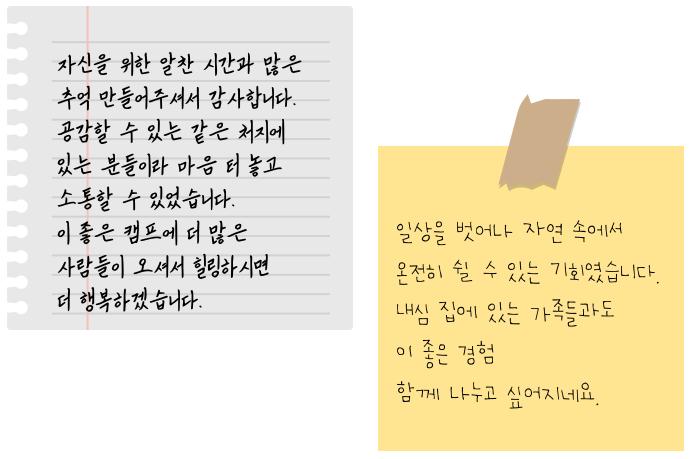 자신을 위한 알찬 시간과 많은
추억 만들어주셔서 감사합니다.
공감할 수 있는 같은 처지에
있는 분들이라 마음 터 놓고
소통할 수 있었습니다.
이 좋은 캠프에 더 많은
사람들이 오셔서 힐링하시면
더 행복하겠습니다.
일상을 벗어나 자연 속에서
온전히 쉴 수 있는 기회였습니다.
내심 집에 있는 가족들과도
이 좋은 경험
함께 나누고 싶어지네요.